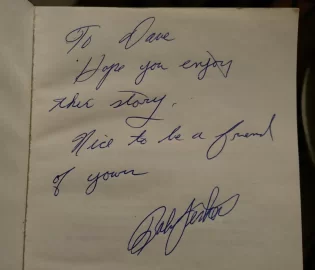 To Dave
Hope you enjoy
this story.
Nice to be a friend
of yours